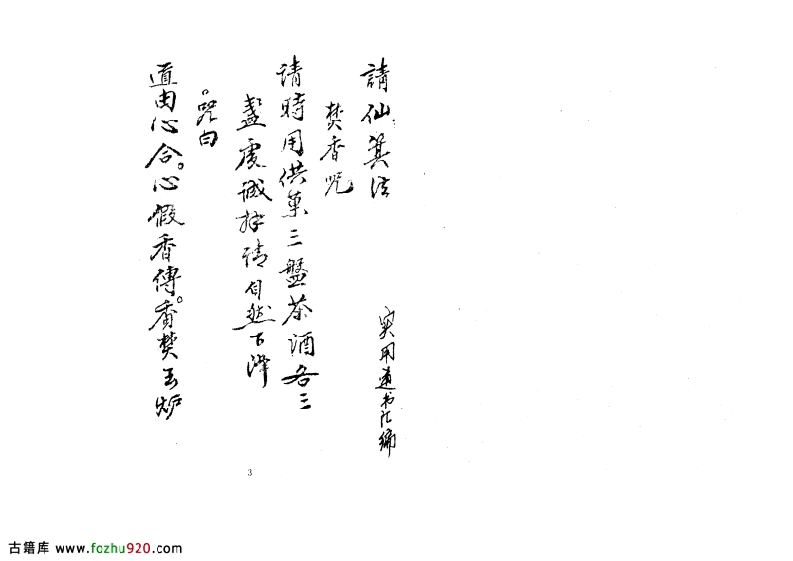 請仙箕法
实用道书汇编
焚香咒
请時用供菓三盤茶酒各三
盞虔诚拜请自然下降
咒曰
道由心合。心假香傳。香焚玉炉
3
古籍库 www.fozhu920.com